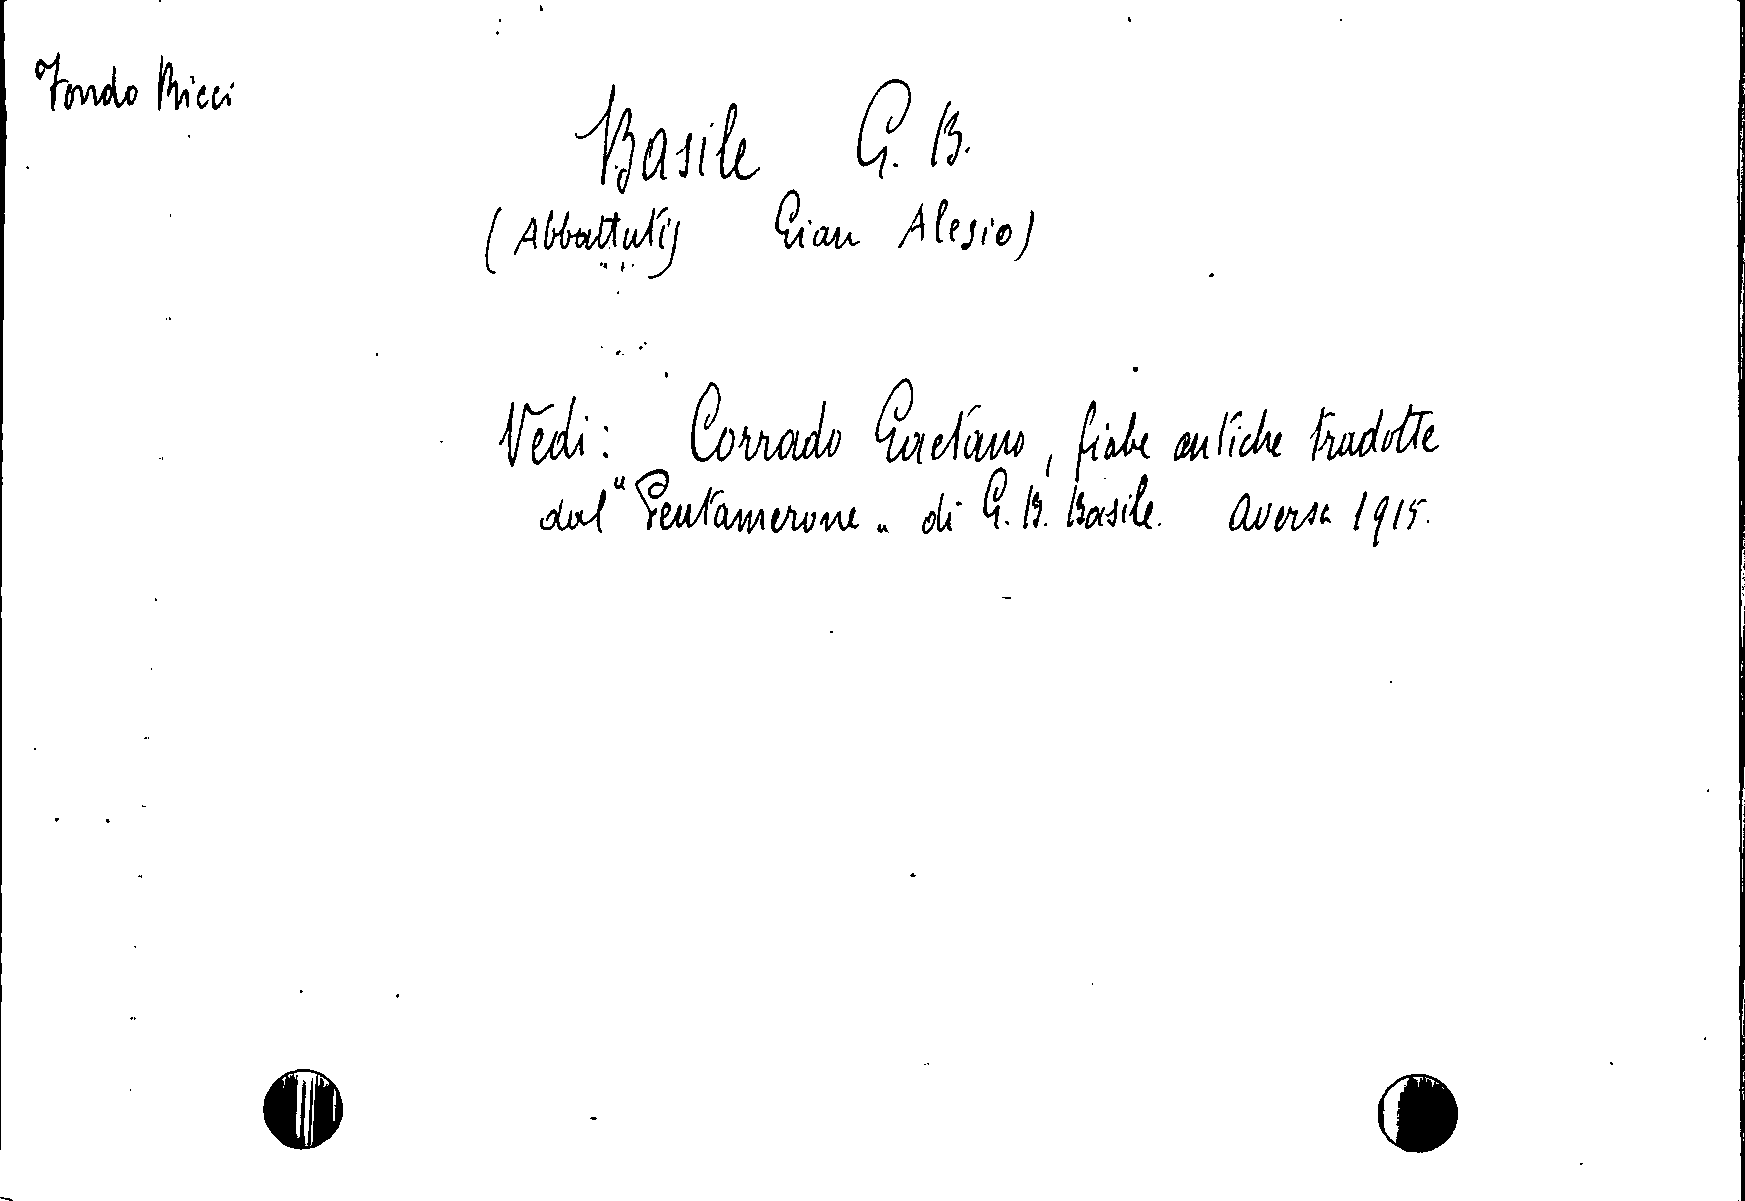 Fondo Ricci
Basile G. B.
(Abbattutis Gian Alesio)
Vedi: Corrado Gaetano, fiabe antiche tradotte
dal "Pentamerone" di G. B. Basile. Aversa 1915.